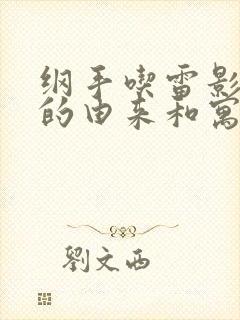 纲手喫雷影
的由来和寓
劉文西